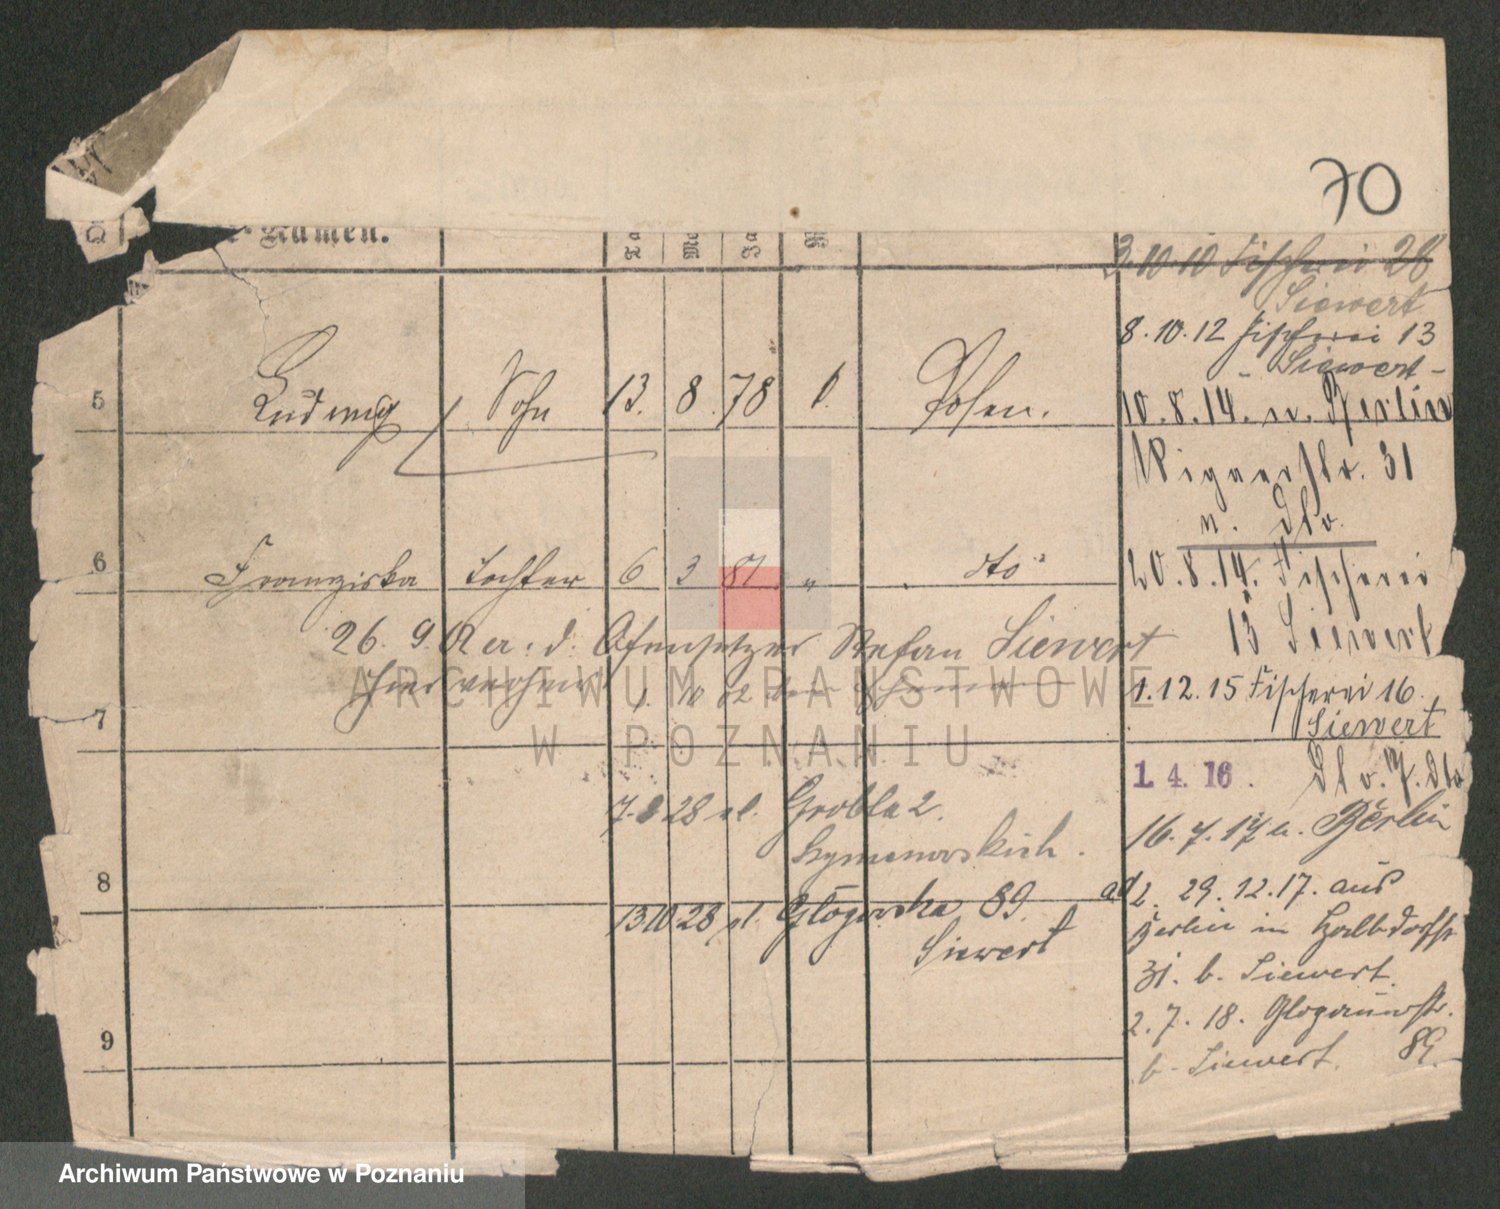 70
Namen.
3.10.10 Fischerei 26
Siewert
8.10.12 Fischerei 13
- Siewert -
5 Ludwig Sohn 13. 8. 78 k. Posen.
10.8.14. n. Berlin
31
n. Dlo.
6 Franziska Tochter 6 3 81 " dto
20.8.14. Fischerei
13 Siewert
26. 9. d. Ofensetzer Stefan Siewert
7
1.12.15 Fischerei 16.
Siewert
1. 4. 16.
7. 8 28 ul. Grobla 2.
Szymanowskich.
16.7.17 n. Berlin
8
ad 2. 29.12.17. aus
Berlin in Halbdorfstr
31. b. Siewert.
13 10 28 ul. Glogowska 89.
Siewert
2.7.18. Glogauerstr.
89.
b. Siewert.
9
ARCHIWUM PAŃSTWOWE
W POZNANIU
Archiwum Państwowe w Poznaniu